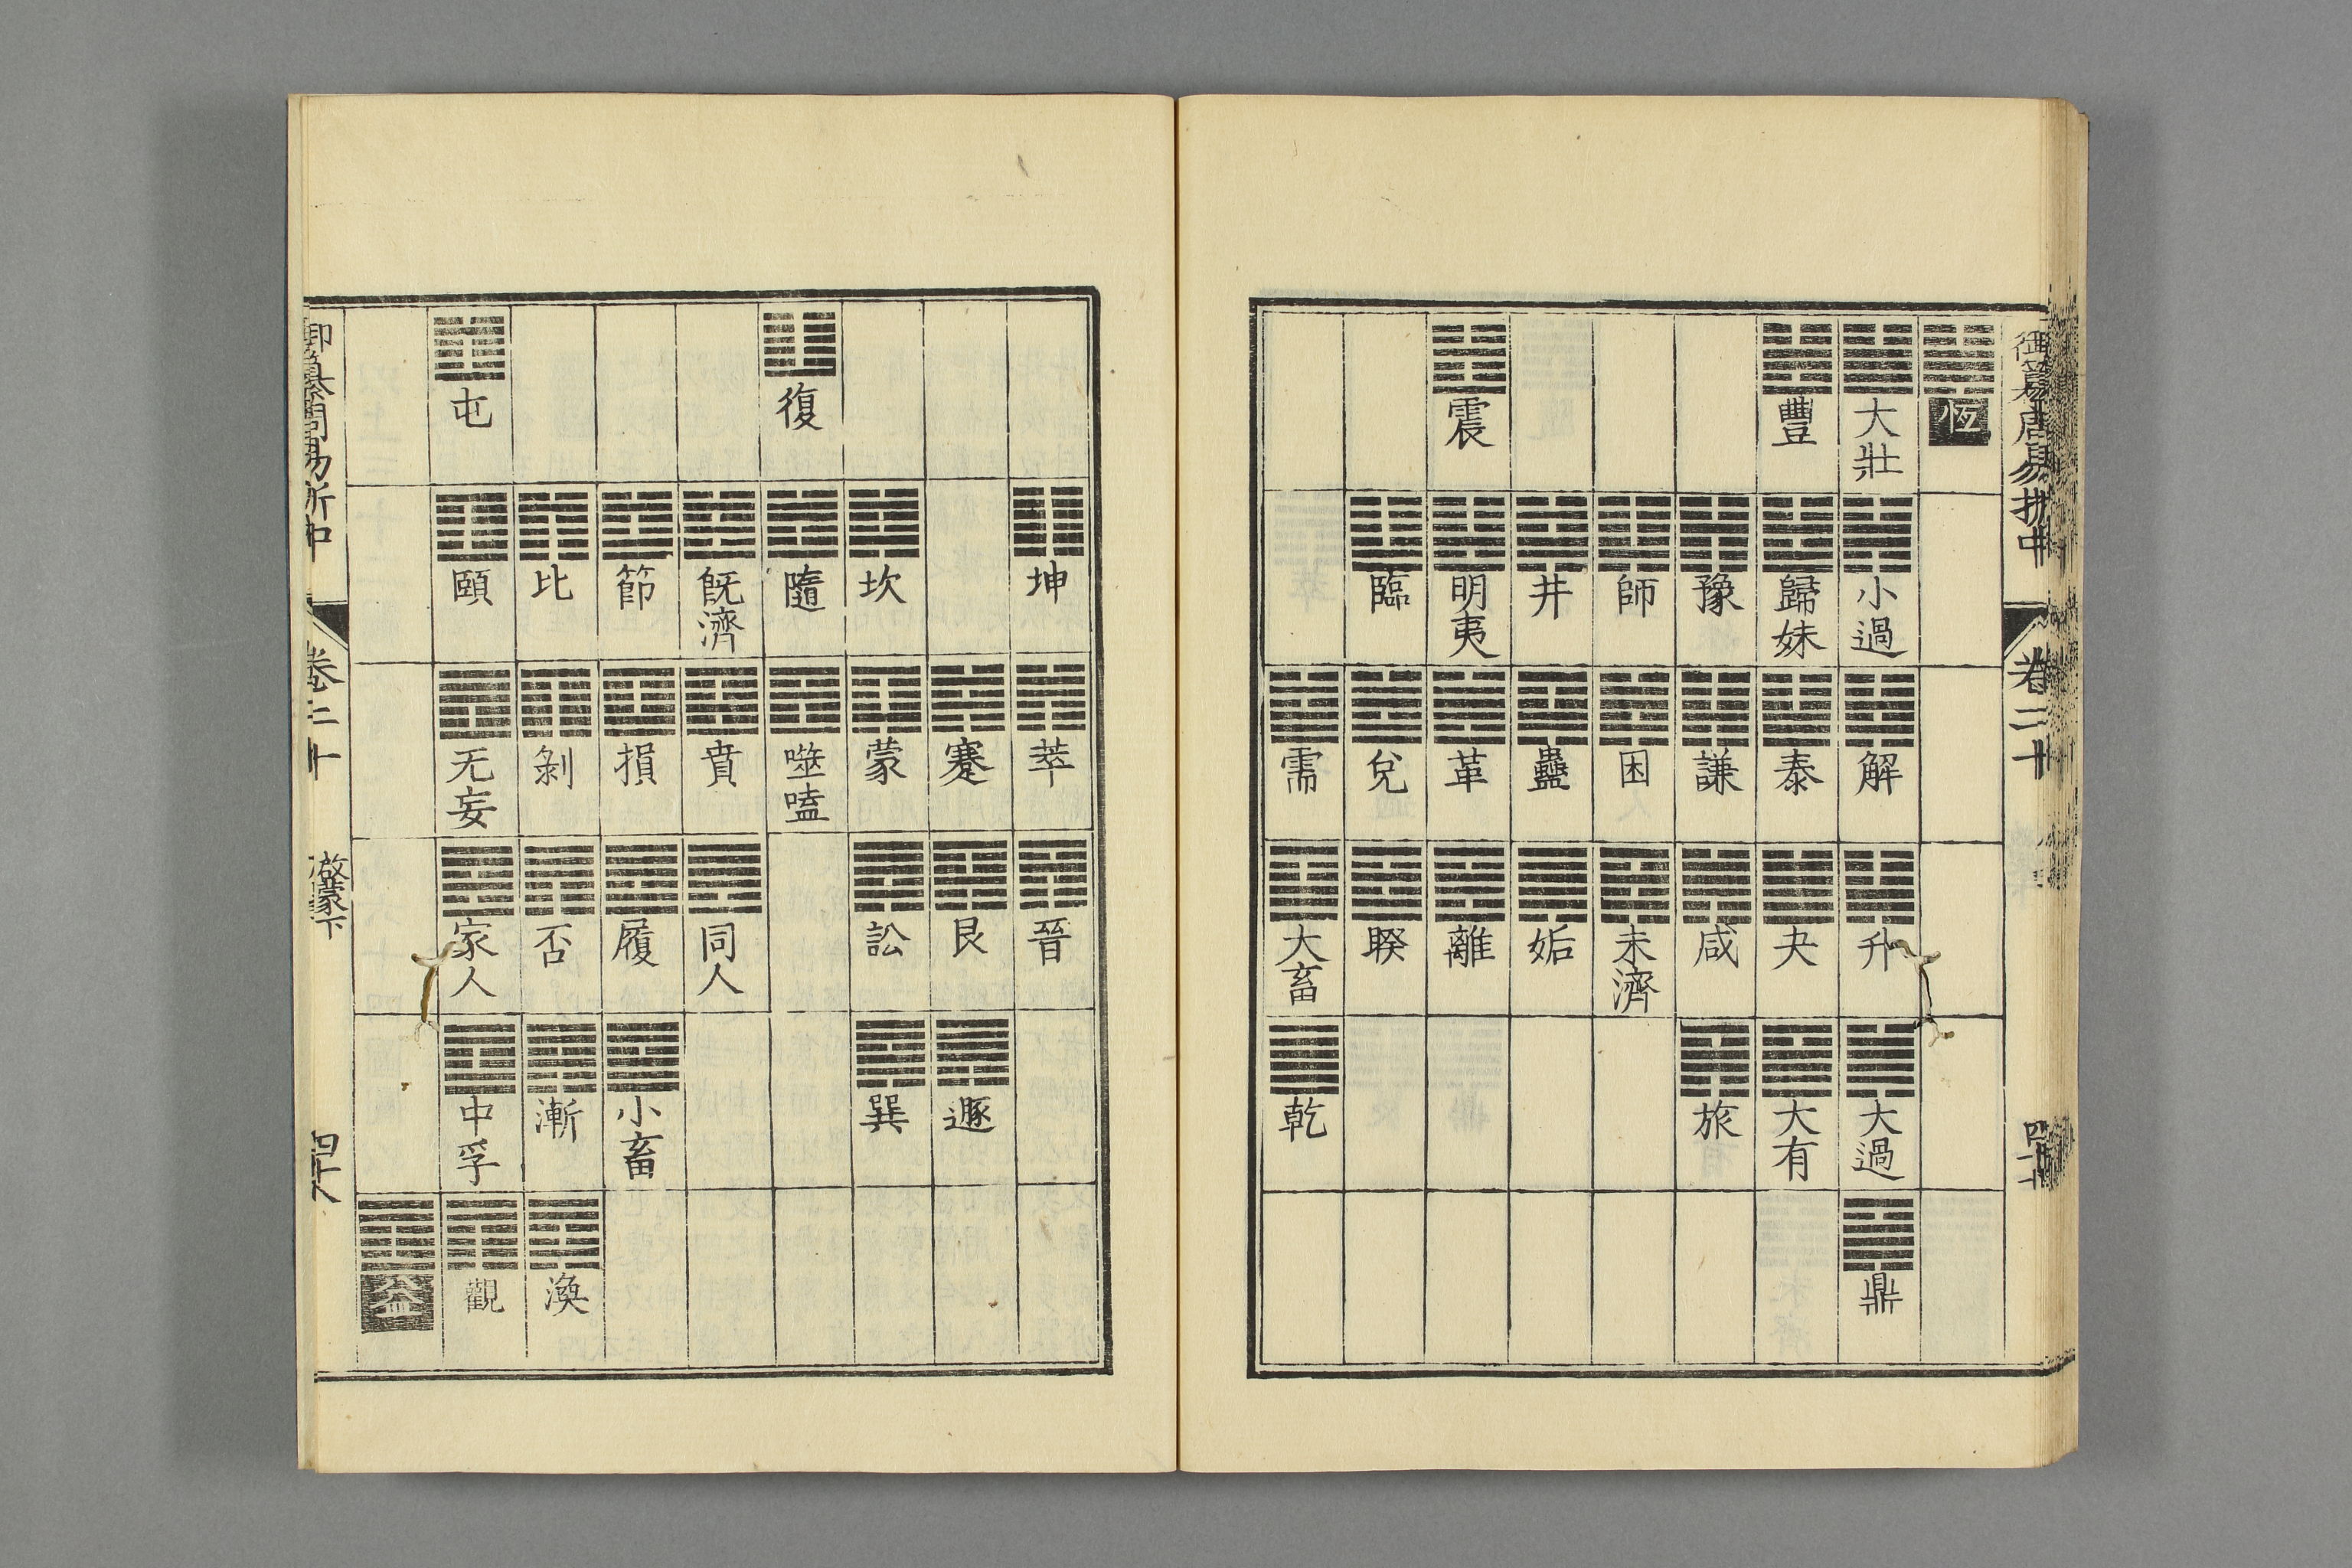 御纂周易折中 卷二十
恆
大壯 小過 解 升 大過 鼎
豐 歸妹 泰 夬 大有
豫 謙 咸 旅
師 困 未濟
井 蠱 姤
震 明夷 革 離
臨 兌 睽
需 大畜 乾
坤 萃 晉
蹇 艮 遯
坎 蒙 訟 巽
復 隨 噬嗑
既濟 賁 同人
節 損 履 小畜
比 剝 否 漸 渙
屯 頤 无妄 家人 中孚 觀
益
御纂周易折中 卷二十 啟蒙下 四十八